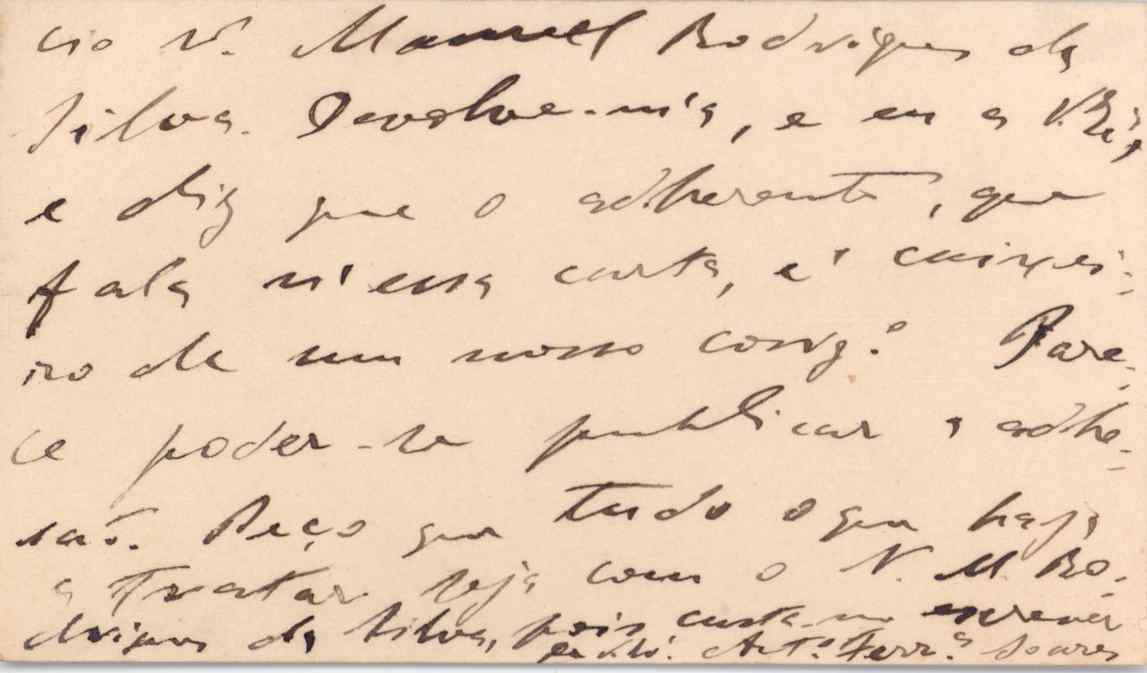 cio N. Manuel Rodrigues da
Silva. Devolve-m'a, e eu a V. Ex.ª,
e diz que o adherente, que
fala n'essa carta, é caixei-
ro de um nosso corrg.º Pare-
ce poder-se publicar a adhe-
são. Peço que tudo o que haja
a tratar seja com o N. M. Ro-
drigues da Silva, pois custa-me escrever
Ant.º Ferr.ª Soares